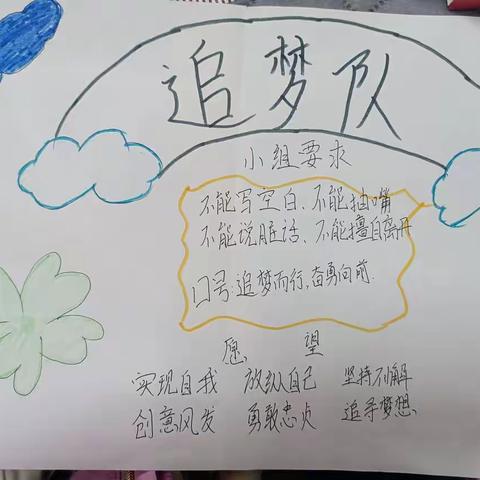 追梦队
小组要求
不能写空白、不能抽嘴
不能说脏话、不能擅自离开
口号:追梦而行,奋勇向前.
愿 望
实现自我 放纵自己 坚持不懈
创意风发 勇敢忠贞 追寻梦想